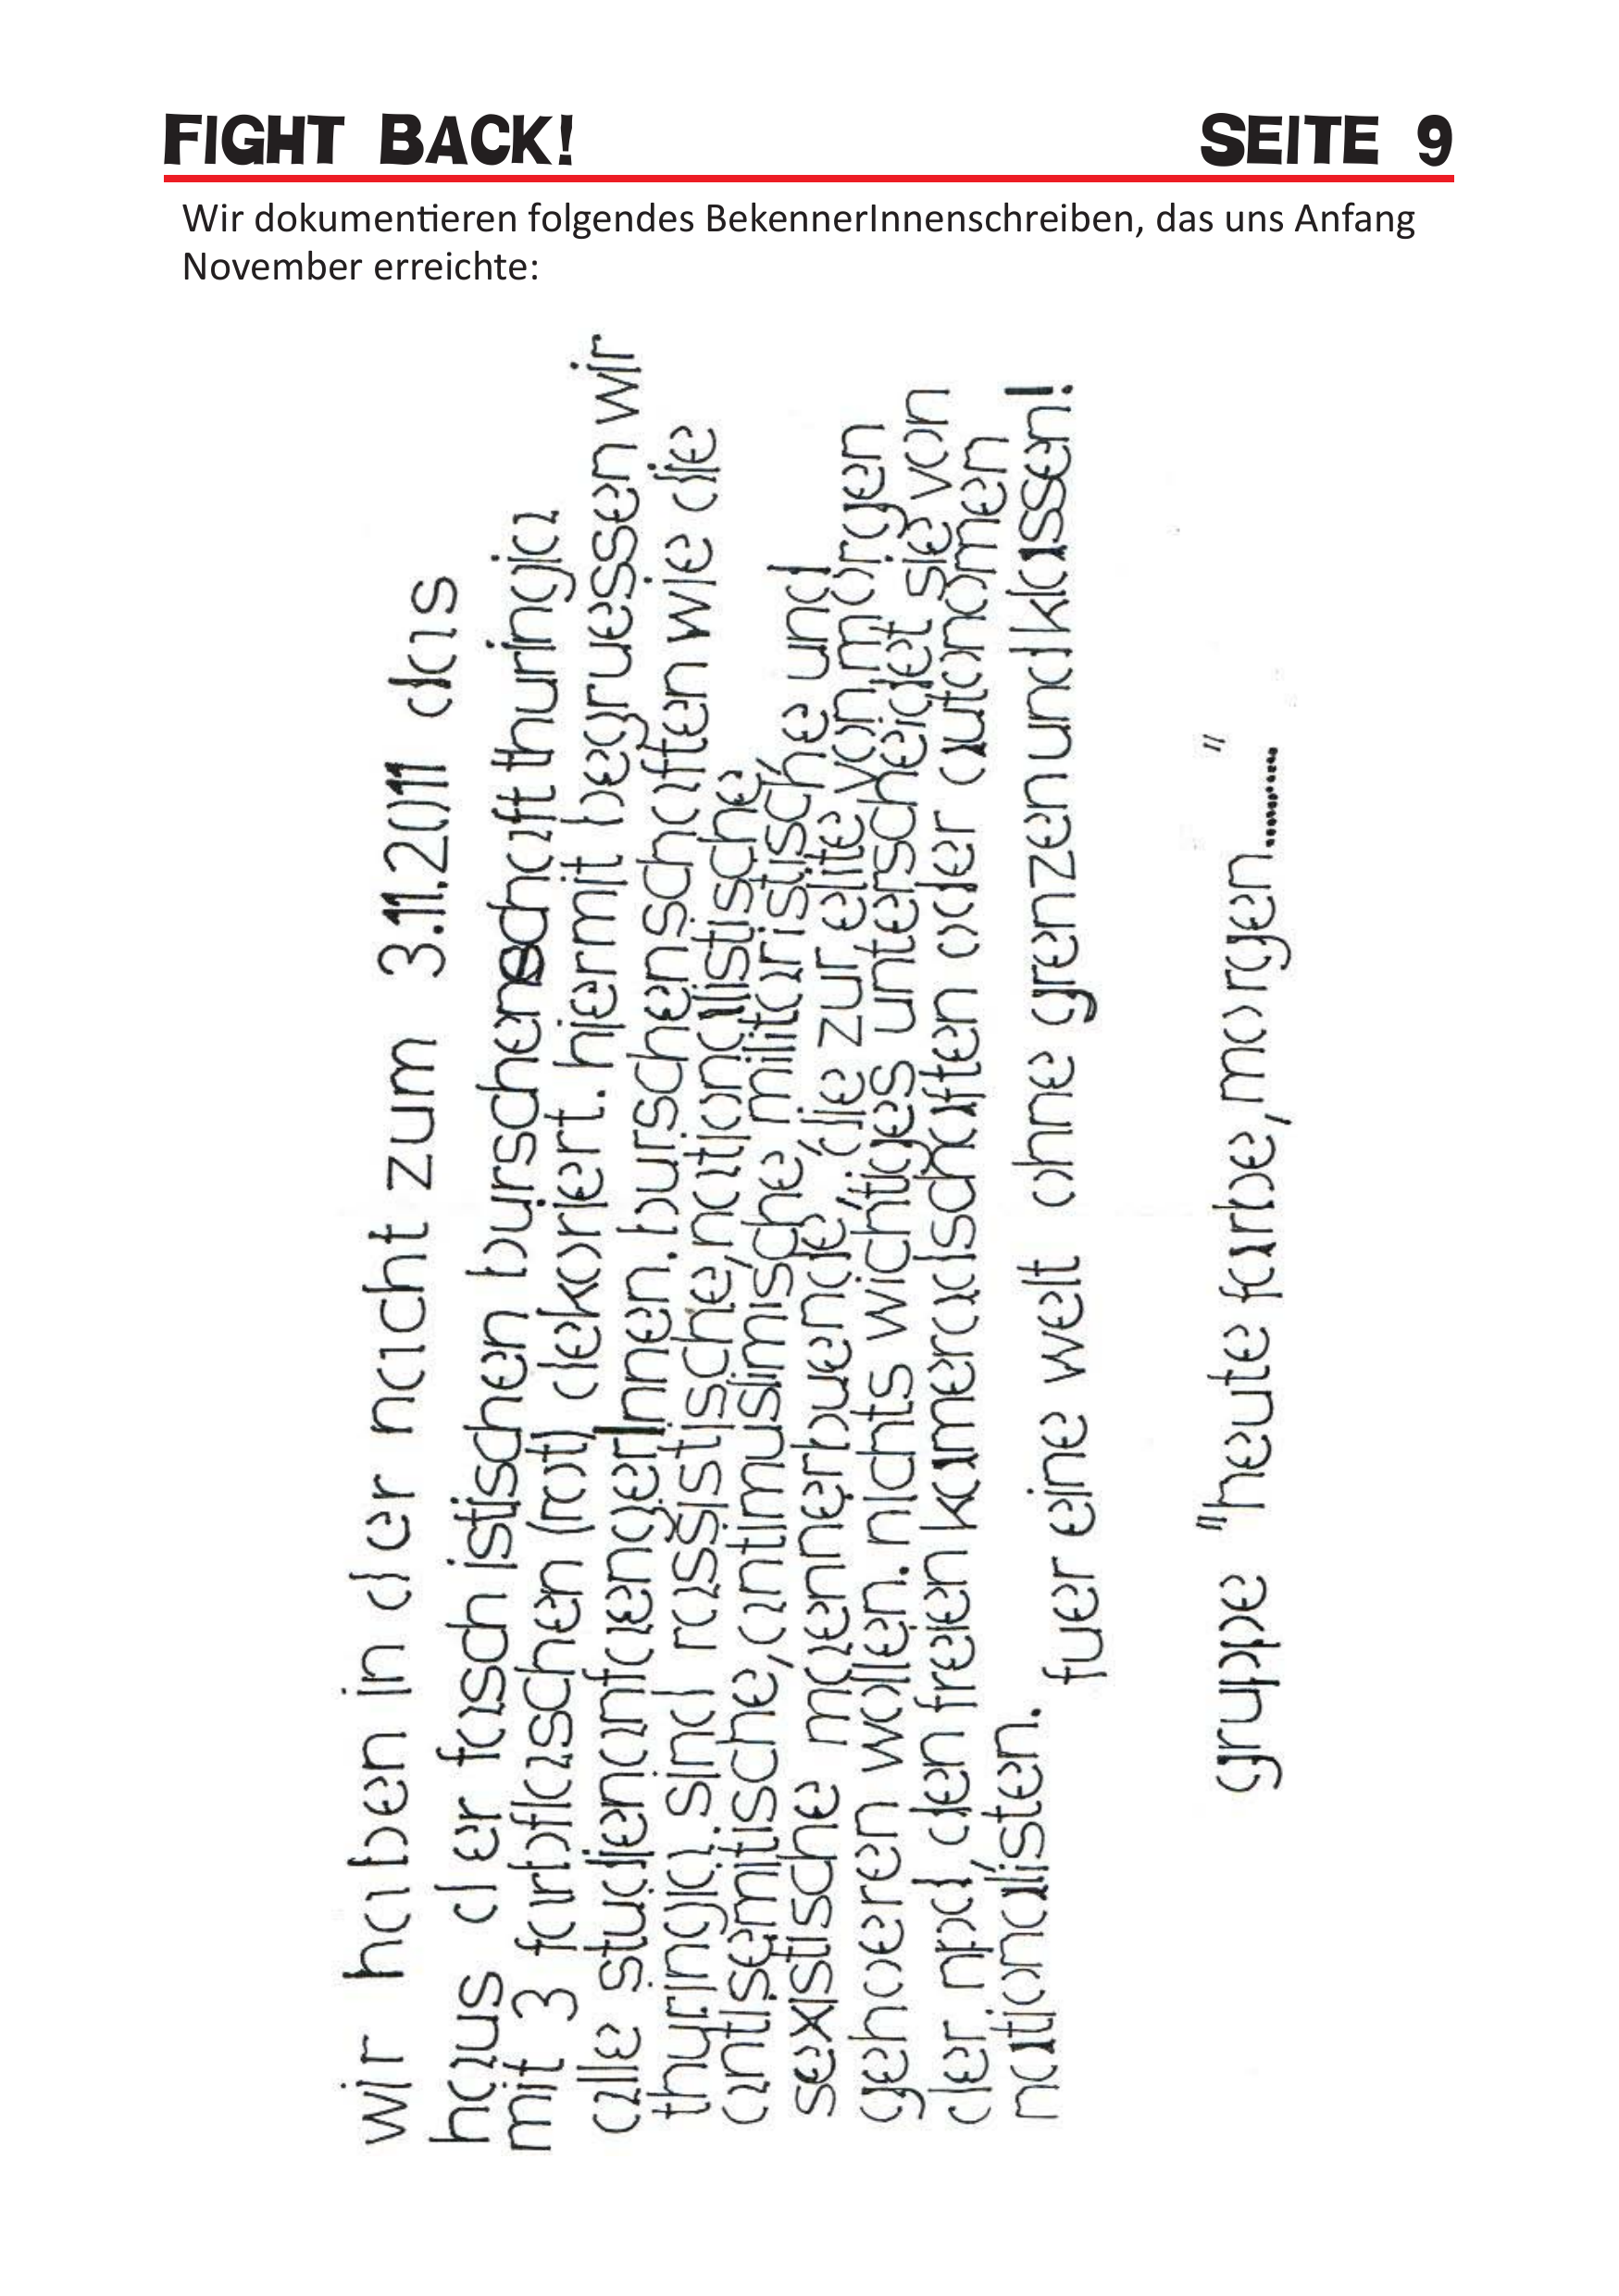 FIGHT BACK! SEITE 9
Wir dokumentieren folgendes BekennerInnenschreiben, das uns Anfang
November erreichte:
wir haben in der nacht zum 3.11.2011 das
haus der faschistischen burschenschaft thuringia
mit 3 farbflaschen (rot) dekoriert. hiermit begruessen wir
alle studienanfaengerInnen. burschenschaften wie die
thuringia sind rassistische, nationalistische,
antisemitische, antimuslimische, militaristische und
sexistische maennerbuende, die zur elite von morgen
gehoeren wollen. nichts wichtiges unterscheidet sie von
der npd, den freien kameradschaften oder autonomen
nationalisten.
fuer eine welt ohne grenzen und klassen!
gruppe "heute farbe, morgen........."